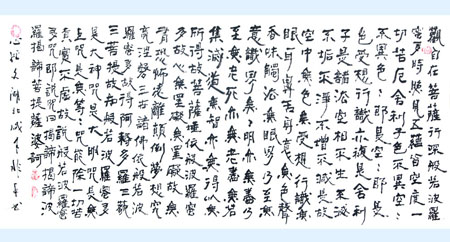 觀自在菩薩行深般若波羅
蜜多時照見五蘊皆空度一
切苦厄舍利子色不異空空
不異色色即是空空即是
色受想行識亦復如是舍利
子是諸法空相不生不滅
不垢不淨不增不減是故
空中無色無受想行識無
眼耳鼻舌身意無色聲
香味觸法無眼界乃至無
意識界無無明亦無無明盡乃
至無老死亦無老死盡無苦
集滅道無智亦無得以無
所得故菩提薩埵依般若波羅蜜
多故心無罣礙無罣礙故無
有恐怖遠離顛倒夢想究
竟涅槃三世諸佛依般若波
羅蜜多故得阿耨多羅三藐
三菩提故知般若波羅蜜多
是大神咒是大明咒是無
上咒是無等等咒能除一切苦
真實不虛故說般若波羅蜜
多咒即說咒曰揭諦揭諦波
羅揭諦菩提薩婆訶
心經